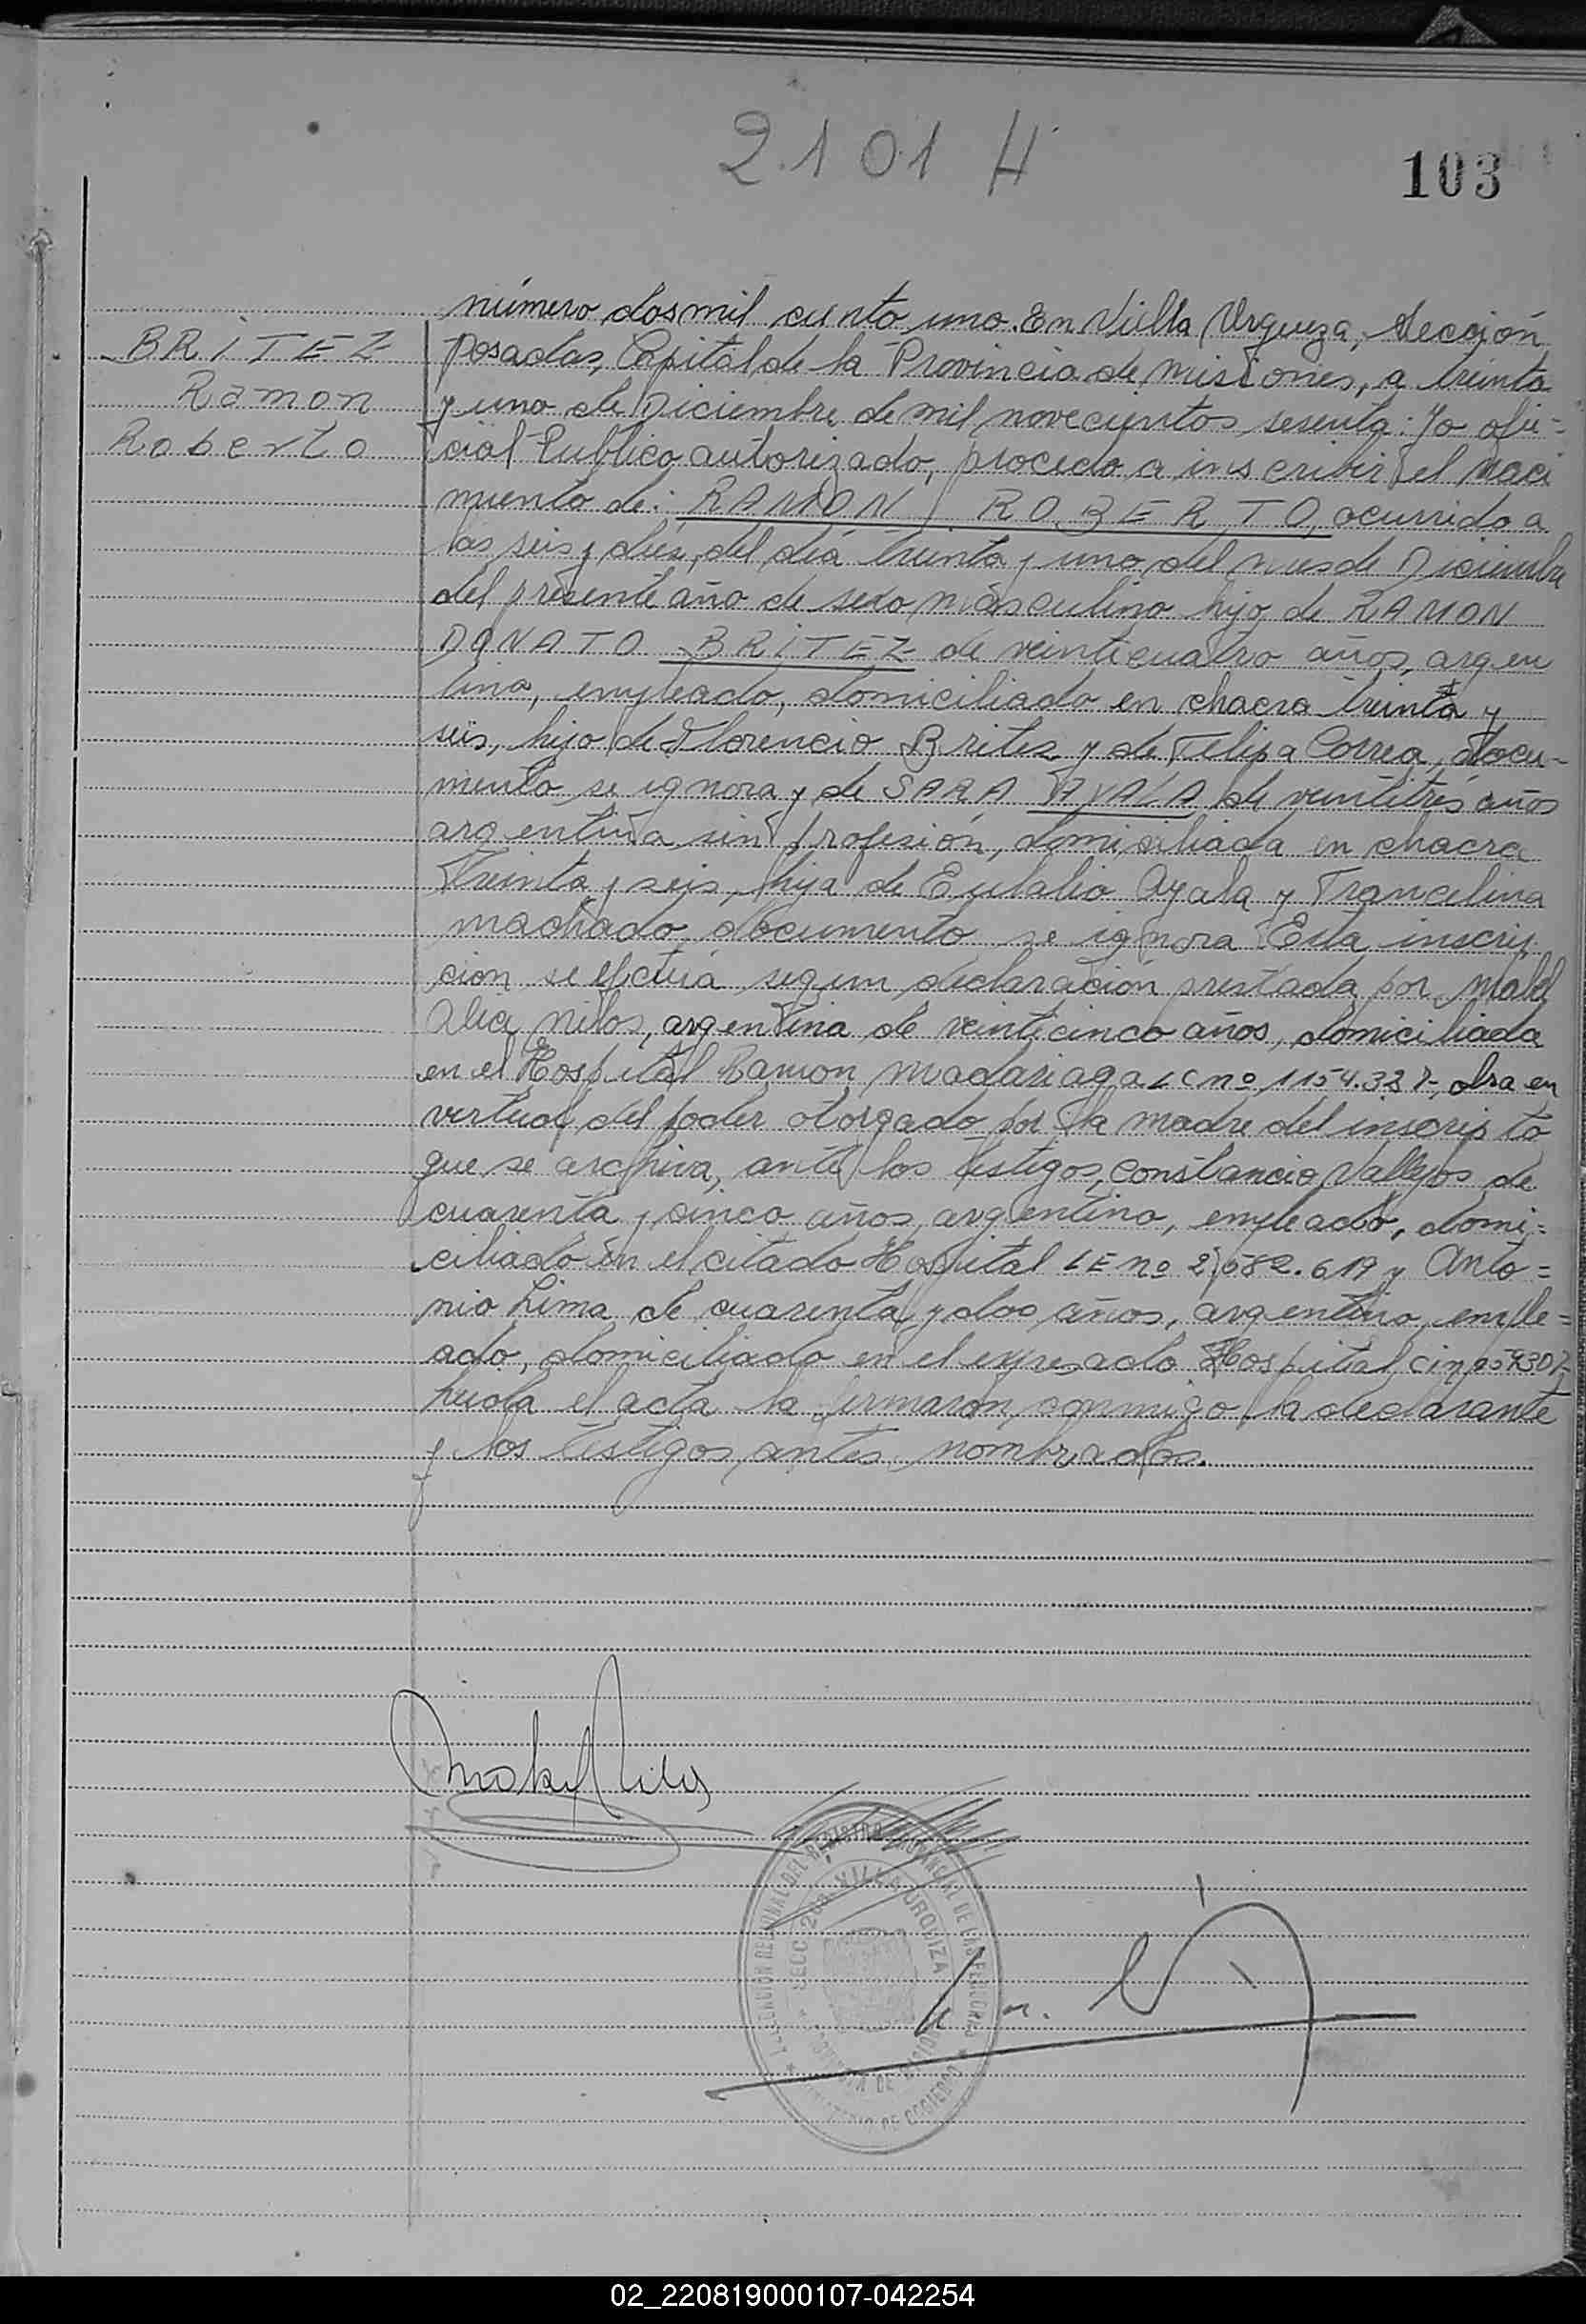 2101 H
103
BRITEZ
Ramon
Roberto
número dosmil ciento uno. En Villa Urquiza, Sección
Posadas, Capital de la Provincia de Misiones, a treinta
y uno de Diciembre de mil novecientos sesenta: Yo ofi-
cial Publico autorizado, procedo a inscribir el naci
miento de: RAMON ROBERTO, ocurrido a
las seis y diez, del día treinta y uno del mes de Diciembre
del presente año de sexo masculino hijo de RAMON
DONATO BRITEZ de veinticuatro años, argen
tino, empleado, domiciliado en chacra treinta y
seis, hijo de Florencio Britez y de Felipa Correa, docu-
mento se ignora y de SARA AYALA de veintitrés años
argentina sin profesión, domiciliada en chacra
Treinta y seis, hija de Eulalio Ayala y Francelina
Machado, documento se ignora Esta inscrip
cion se efectúa segun declaración prestada por
Nilos, argentina de veinticinco años, domiciliada
en el Hospital Ramon Madariaga LC nº 1154.327-, obra en
virtud del poder otorgado por la madre del inscripto
que se archiva, ante los testigos, Constancio Vallejos de
cuarenta y cinco años, argentino, empleado, domi=
ciliado en el citado Hospital LE nº 2.582.619 y Anto=
nio Lima de cuarenta y dos años, argentino, emple=
ado, domiciliado en el expresado Hospital, CI nº
Leida el acta la firmaron conmigo la declarante
y los testigos antes nombrados.
DEL REGISTRO PROVINCIAL DE LAS PERSONAS
SECC. VILLA URQUIZA
MINISTERIO DE GOBIERNO
02_220819000107-042254